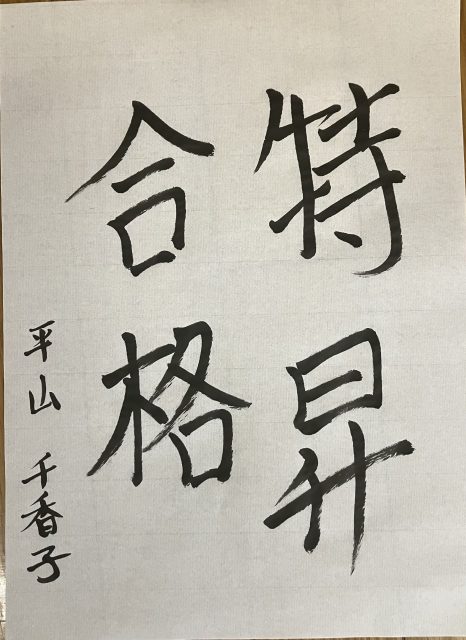 特昇
合格
平山 千香子